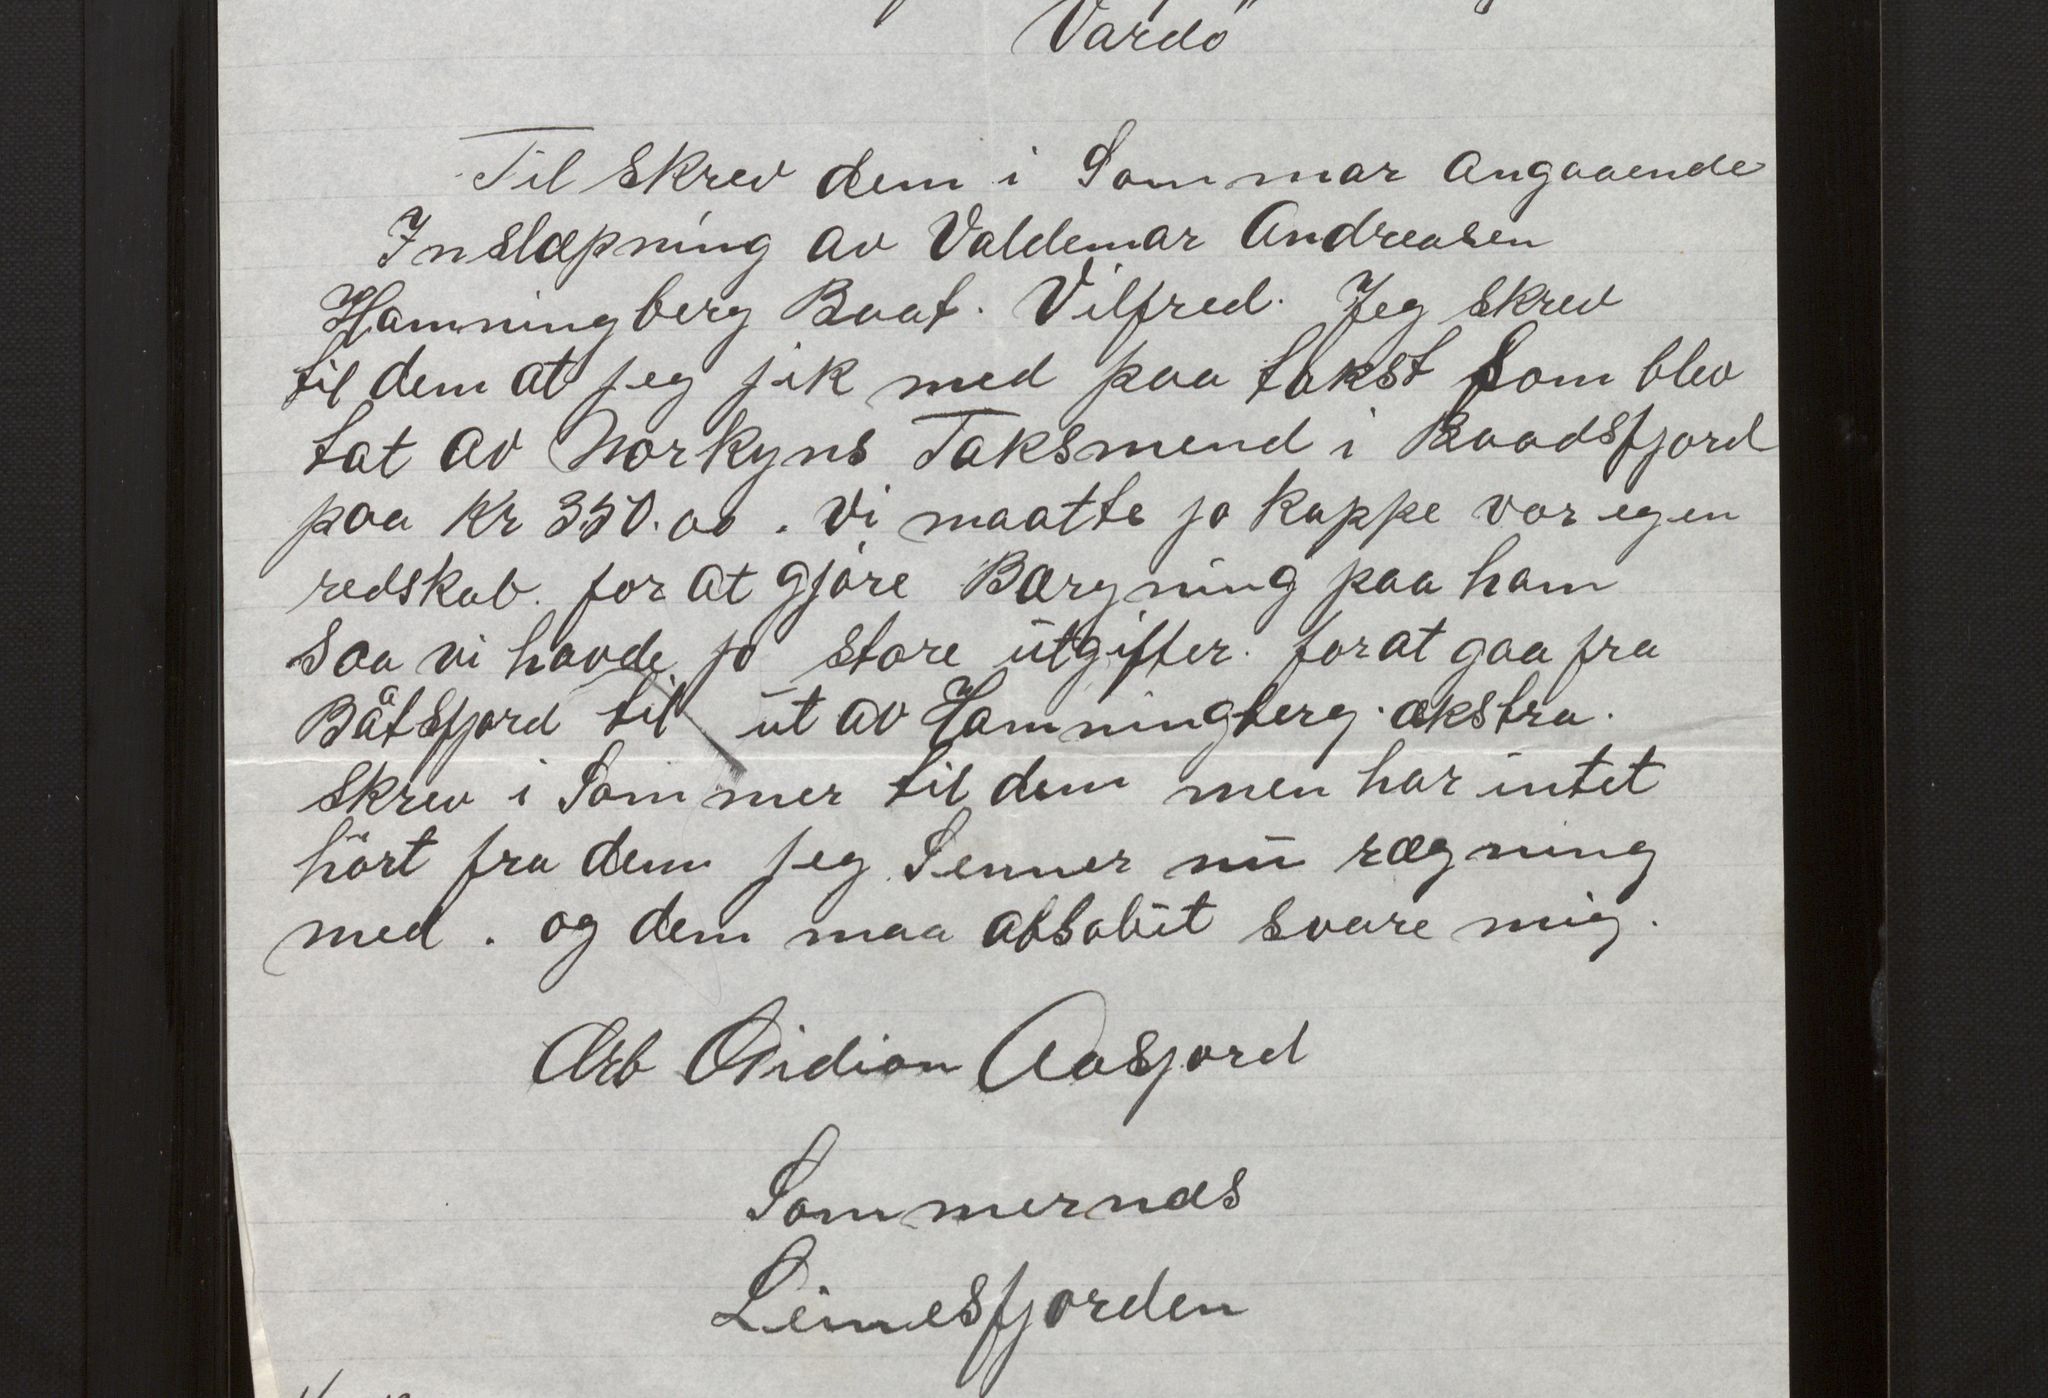 Vardö
Til skrev dem i Sommar angaaende
Inslæpning av Valdemar Andreasen
Hamningberg Baat. Vilfred. Jeg skrev
til dem at jeg jik med paa takst Som blev
tat av Norkyns Taksmend i Baadsfjord
paa Kr 350.00. Vi maatte jo kappe vor egen
redskab. for at gjöre Bærgning paa ham
saa vi havde jo store utgifter. for at gaa fra
Båtsfjord til ut av Hamningberg. ækstra.
skrev i Sommer til dem men har intet
hört fra dem jeg Senner nu rægning
med. og dem maa absolut svare mig.
Ærb Aasjord
Sommernæs